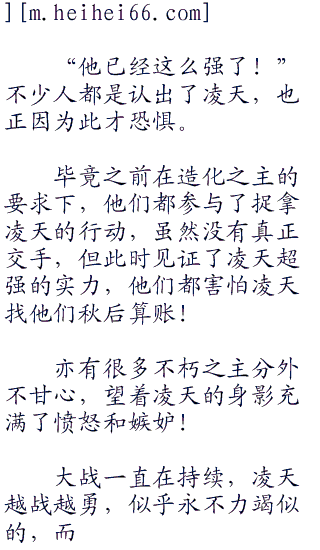 ][m.heihei66.com]
“他已经这么强了！”
不少人都是认出了凌天，也
正因为此才恐惧。
毕竟之前在造化之主的
要求下，他们都参与了捉拿
凌天的行动，虽然没有真正
交手，但此时见证了凌天超
强的实力，他们都害怕凌天
找他们秋后算账！
亦有很多不朽之主分外
不甘心，望着凌天的身影充
满了愤怒和嫉妒！
大战一直在持续，凌天
越战越勇，似乎永不力竭似
的，而